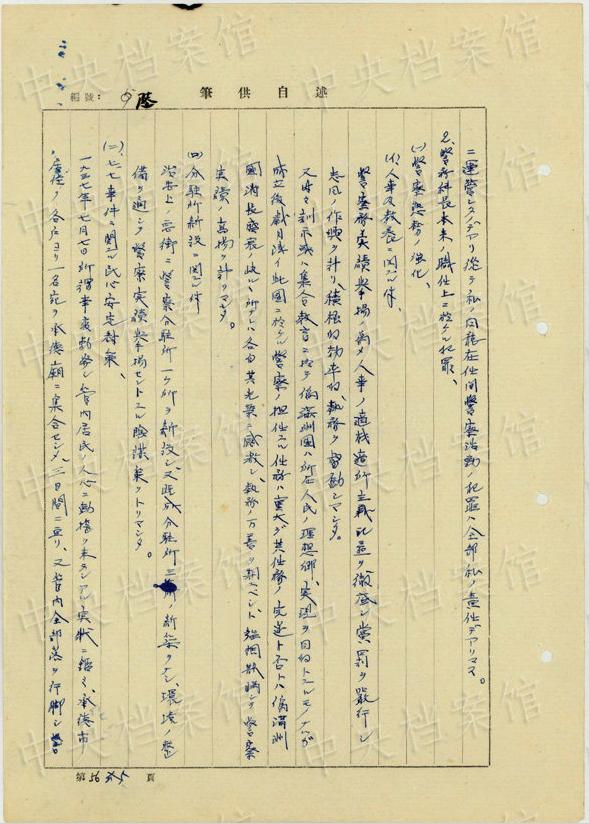 述自供筆
編號：
ニ運営シタノデアリ従テ私ノ同龍在任間警察活動ノ犯罪ハ全部私ノ責任デアリマス。
2、警務科長本来ノ職仕上ニ於ケル犯罪、
(一)警察態勢ノ強化、
(イ)人事及教養ニ関スル件、
警察務実績挙揚ノ為メ人事ノ適材適所主義配置ヲ徹底シ賞罰ヲ厳行シ
志気ノ作興ヲ計リ積極的効率的執務ヲ督励シマシタ。
又時々訓示或ハ集合教育ニ於テ偽満洲国ハ所在人民ノ理想郷ノ実現ヲ目的トスルモノナルガ
成立後歳月浅イ此国ニ於ケル警察ノ担任スル任務ハ重大デ其任務ノ完遂ト否トハ偽満洲
国消長ノ岐ルル所ナレバ各自其光栄ニ感激シ執務ノ万善ヲ期スベシト強調鼓吹シテ警察
実績ノ高揚ヲ計リマシタ。
(四)分駐所新設ニ関スル件
治安上ノ要衝ニ警察分駐所一ケ所ヲ新設シ又既成分駐所三ケ所ノ新築ヲナシ、環境ノ整
備ヲ通シテ警察実績挙揚セントスル陰謀策ヲトリマシタ。
(二)七七事件ニ関スル民心安定対策、
一九三七年七月七日所謂事変勃発シ管内居民ノ人心ニ動揺ヲ来タシアル実状ニ鑑ミ、承徳市
街ノ各戸ヨリ一名宛ヲ承徳廟ニ集合セシメ、三日間ニ亘リ、又管内全部落ヲ行脚シ警
第 56 頁
中央档案馆